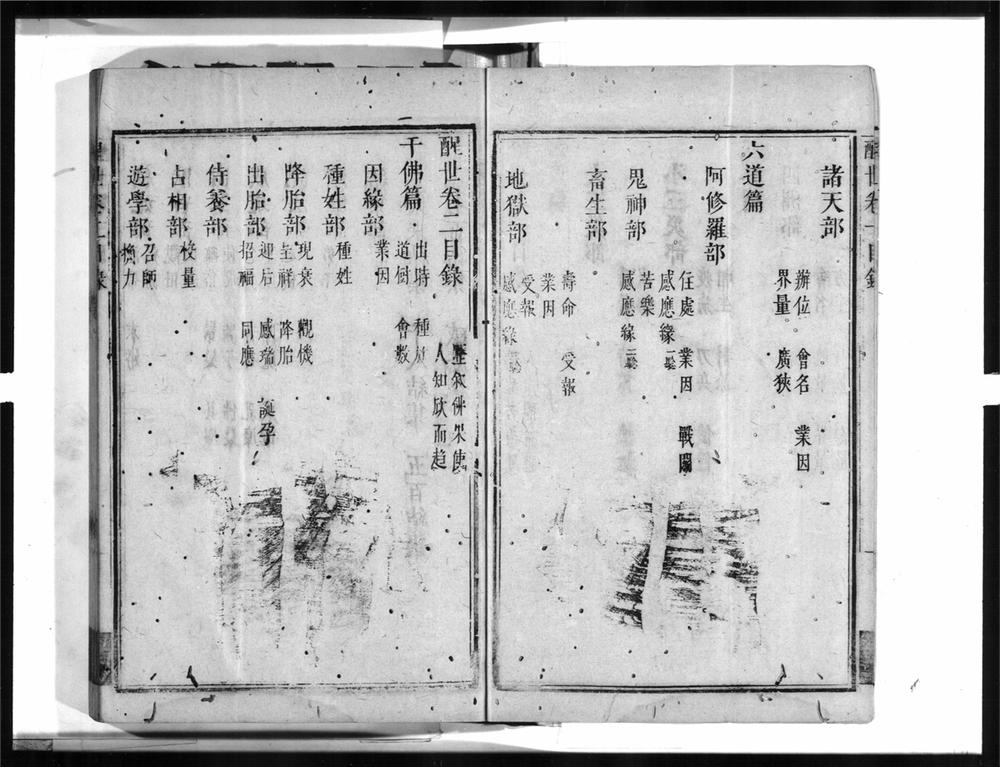 諸天部
辦位 會名 業因
界量 廣狹
六道篇
阿修羅部
住處 業因 戰鬬
感應緣
鬼神部
苦樂
感應緣
畜生部
壽命 受報
業因
地獄部
受報
感應緣
醒世卷二目錄
歷叙佛果使
人知欣而趨
千佛篇
出時 種族
道樹 會數
因緣部
業因
種姓部
種姓
降胎部
現衰 觀機
呈祥 降胎
出胎部
迎后 感瑞 誕孕
招福 同應
侍養部
占相部
校量
遊學部
召師
捔力